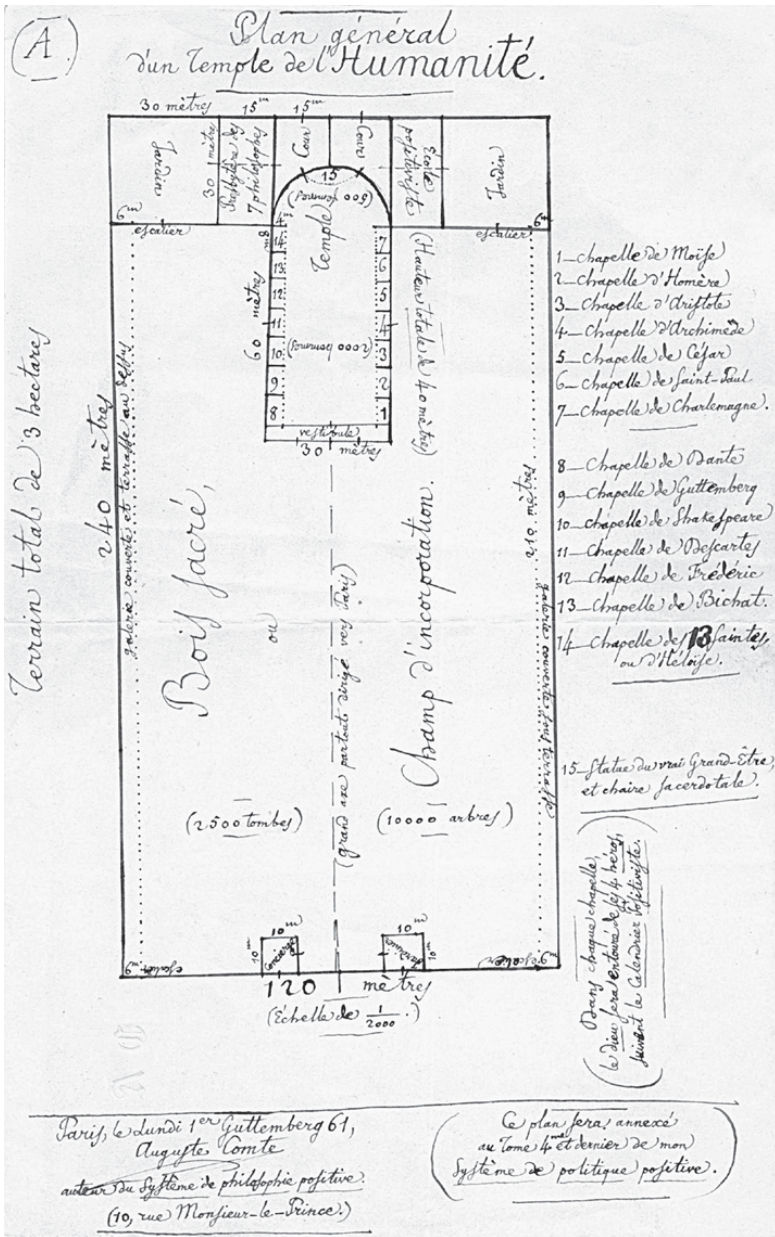 (A.)
Plan général
d'un Temple de l'Humanité.
30 mètres
15m
15m
Jardin
30 mètres
Presbytère des
7 philosophes
Cour
Cour
École
positiviste
Jardin
15
(500 hommes)
Temple
6m
escalier
escalier
6m
4m
8m
14
13
12
11
10
9
8
7
6
5
4
3
2
1
60 mètres
(2000 hommes)
(Hauteur totale de 40 mètres)
vestibule
30 mètres
Terrain total de 3 hectares
240 mètres
galerie couverte et terrasse au dessus
Bois sacré,
ou
Champ d'incorporation.
(grand axe partout dirigé vers Paris)
210 mètres
galerie couverte sous terrasse
(2500 tombes)
(10000 arbres)
10m
10m
Concierge
10m
10m
6m
escalier
escalier
6m
120 mètres
(Échelle de 1/2000.)
1—Chapelle de Moïse
2—Chapelle d'Homère
3—Chapelle d'Aristote
4—Chapelle d'Archimède
5—Chapelle de César
6—Chapelle de Saint-Paul
7—Chapelle de Charlemagne.
8—Chapelle de Dante
9—Chapelle de Guttemberg
10—Chapelle de Shakespeare
11—Chapelle de Descartes
12—Chapelle de Frédéric
13—Chapelle de Bichat.
14—Chapelle des 13 Saintes,
ou d'Héloïse.
15—Statue du vrai Grand-Être,
et chaire sacerdotale.
(Dans chaque chapelle,
le dieu sera entouré de ses 4 héros,
suivant le Calendrier Positiviste.)
Paris, le Lundi 1er Guttemberg 61,
Auguste Comte
auteur du Système de philosophie positive.
(10, rue Monsieur-le-Prince.)
(Ce plan sera annexé
au Tome 4me et dernier de mon
Système de politique positive.)